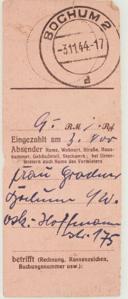 BOCHUM 2
-3.11.44.-17
d
9.- RM - Rpf
Eingezahlt am 3. Nov
Absender Name, Wohnort, Straße, Haus-
nummer, Gebäudeteil, Stockwerk, bei Unter-
mietern auch Name des Vermieters
Frau
Bochum
Hoffmann
str. 175
betrifft (Rechnung, Kennzeichen,
Buchungsnummer usw.):